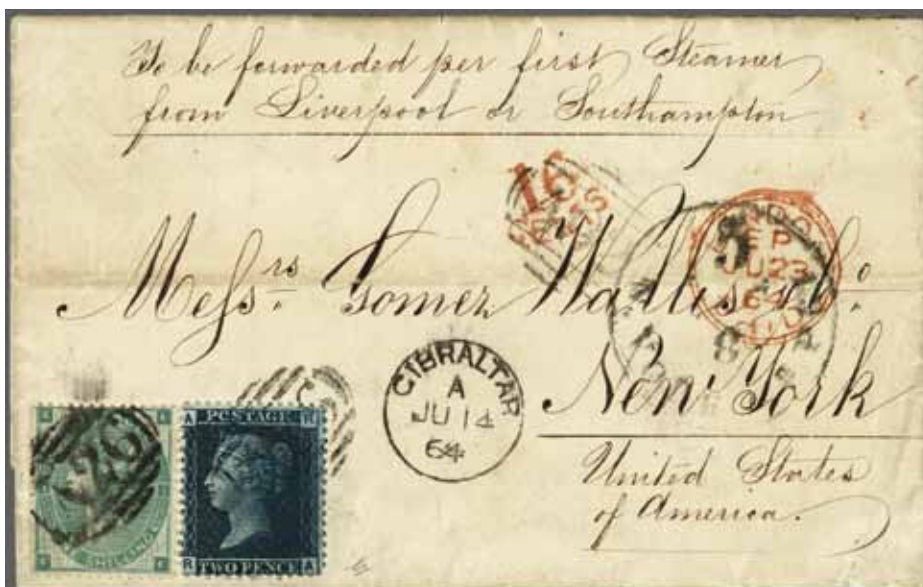 To be forwarded per first Steamer
from Liverpool or Southampton
16
LONDON
EP
JU 23
64
PAID
Messrs. Gomez Wallis & Co.
New York
United States
of America.
GIBRALTAR
A
JU 14
64
A26
SHILLING
A R
POSTAGE
TWO PENCE
R A